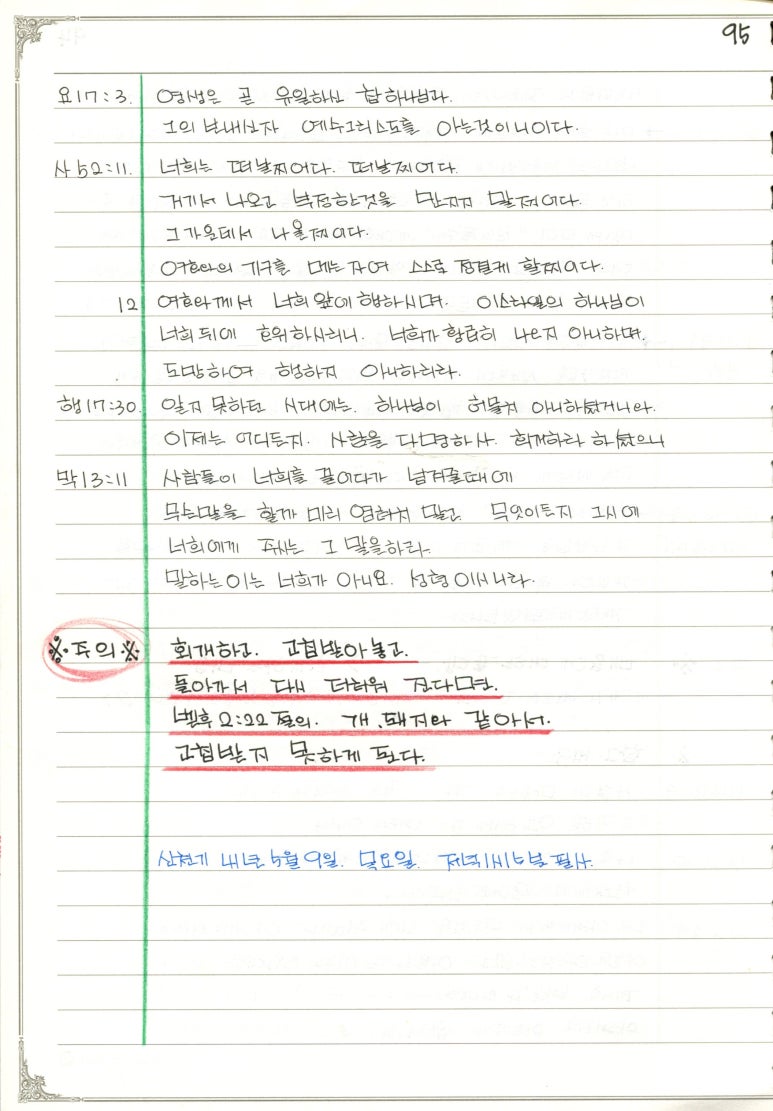 95
요17:3. 영생은 곧 유일하신 참 하나님과.
그의 보내신자 예수그리스도를 아는것이니이다.
사 52:11. 너희는 떠날찌어다. 떠날찌어다.
거기서 나오고 부정한것을 만지지 말찌어다.
그가운데서 나올찌어다.
여호와의 기구를 메는 자여 스스로 정결케 할찌어다.
12 여호와께서 너희 앞에 행하시며. 이스라엘의 하나님이
너희 뒤에 호위하시리니. 너희가 황급히 나오지 아니하며.
도망하여 행하지 아니하리라.
행17:30. 알지 못하던 시대에는. 하나님이 허물치 아니하셨거니와.
이제는 어디든지. 사람을 다 명하사. 회개하라 하셨으니
막13:11 사람들이 너희를 끌어다가 넘겨줄때에
무슨말을 할까 미리 염려치 말고 무엇이든지 그시에
너희에게 주시는 그 말을하라.
말하는이는 너희가 아니요. 성령이시니라.
※.주의※. 회개하고. 고침받아놓고.
돌아가서 다시 더러워 진다면.
벧후 2:22절의. 개.돼지와 같아서.
고침받지 못하게 된다.
신천기 내년 5월 9일. 목요일. 저녁1시 5분 필사.